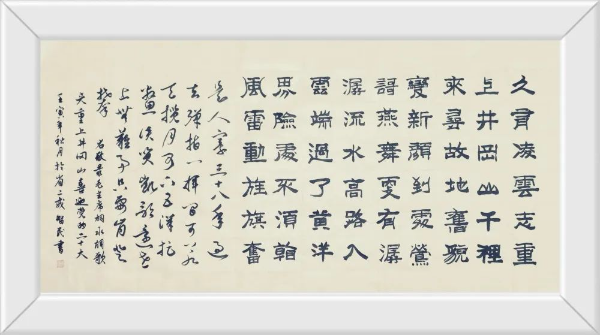 久有凌雲志重
上井岡山千裡
來尋故地舊貌
變新顏到處鶯
謌燕舞更有潺
潺流水高路入
雲端過了黃洋
界險處不須看
風雷動旌旗奮
是人寰三十八年過
去彈指一揮間可上九
天攬月可下五洋捉
鱉談笑凱歌還世
上無難事只要肯登
攀 右敬录毛主席詞水調歌
头重上井岡山喜迎黨的二十大
壬寅年秋月於 民書